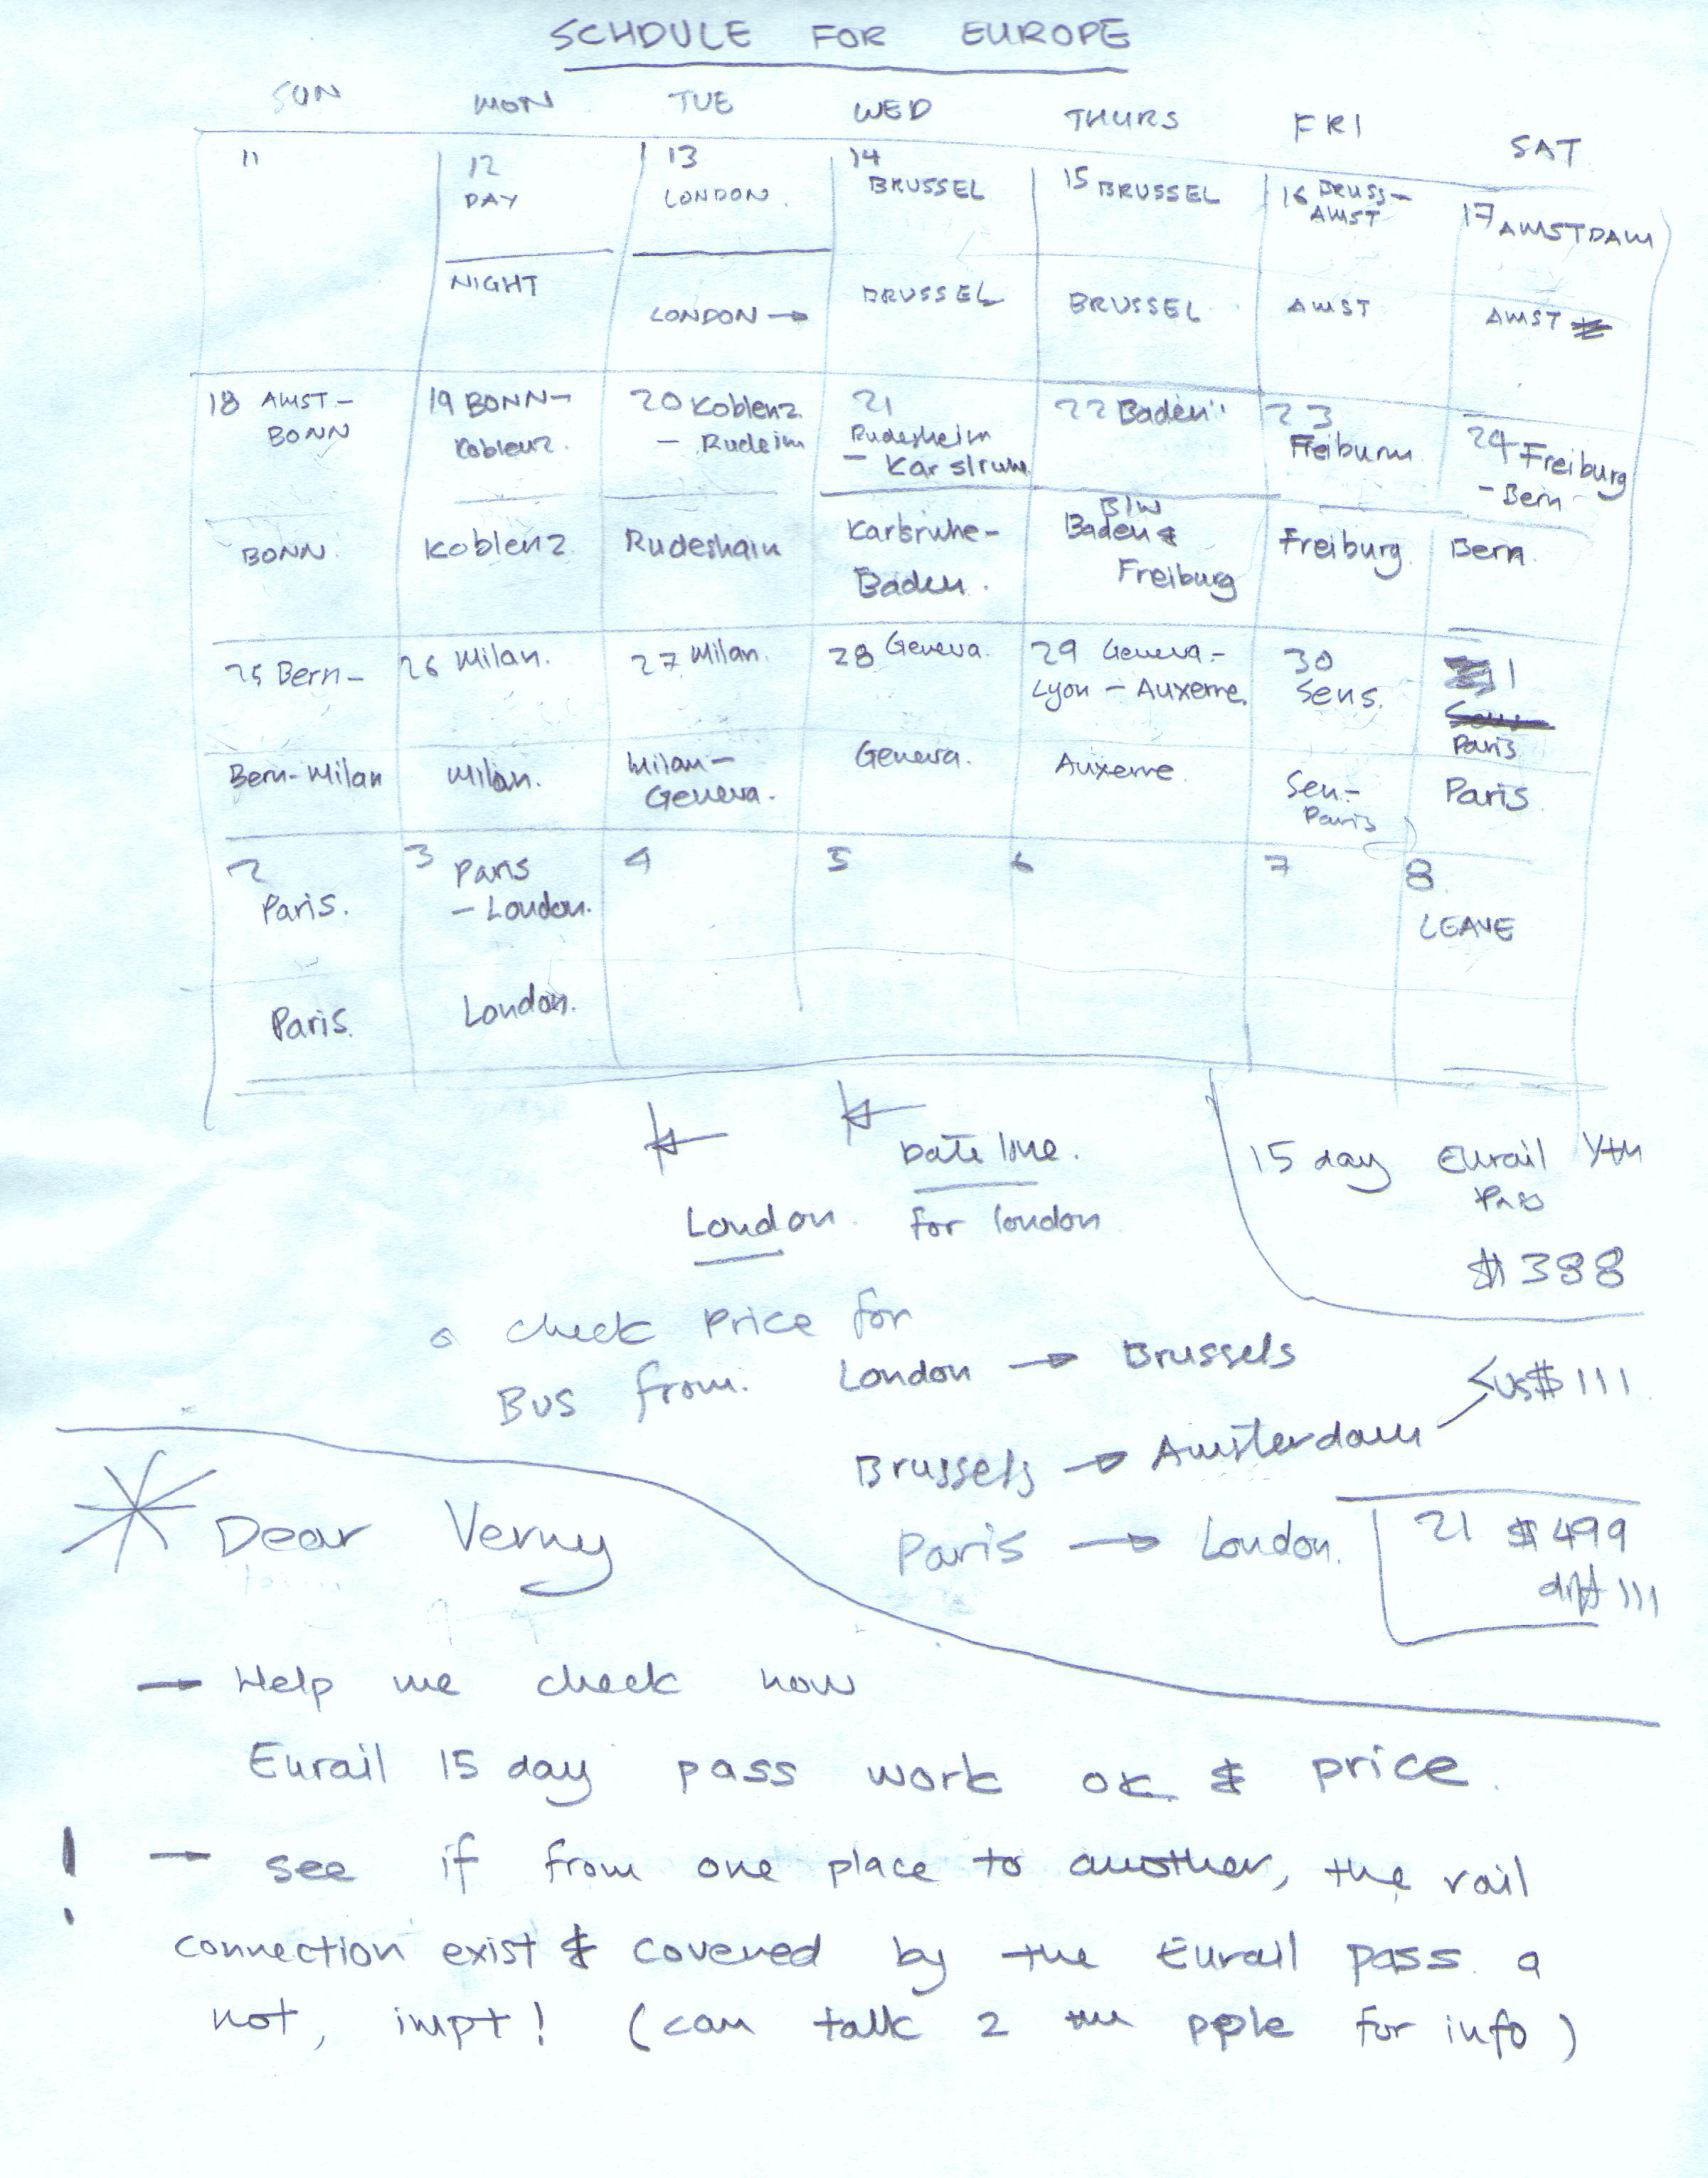 SCHDULE FOR EUROPE
SUN MON TUE WED THURS FRI SAT
11
12
DAY
NIGHT
13
LONDON.
LONDON →
14
BRUSSEL
BRUSSEL
15 BRUSSEL
BRUSSEL
16 BRUSS-
AMST
AMST
17 AMSTDAM
AMST
18 AMST.-
BONN
BONN.
19 BONN-
Koblenz.
Koblenz
20 Koblenz
- Rudeim
Rudeshain
21
Rudesheim
- Karslruhe
Karlsruhe-
Baden.
22 Baden
B/W
Baden &
Freiburg
23
Freiburn
Freiburg.
24 Freiburg
- Bern
Bern.
25 Bern-
Bern-Milan
26 Milan.
Milan.
27 Milan.
Milan-
Geneva.
28 Geneva.
Geneva.
29 Geneva.-
Lyon - Auxerre.
Auxerre.
30
Sens.
Sen.-
Paris
1
Paris
Paris.
2
Paris.
Paris.
3 Paris
- London.
London.
4
5
6
7
8.
LEAVE
Date line.
London. for london
15 day Eurail Yth
Pass
$388
o check price for
Bus from. London → Brussels
<US$111.
Brussels → Amsterdam
Paris → London.
21 $499
diff 111
Dear Verny
→ Help me check how
Eurail 15 day pass work ok & price.
! → see if from one place to another, the rail
connection exist & covered by the Eurail pass o
not, impt! (can talk 2 the pple for info)